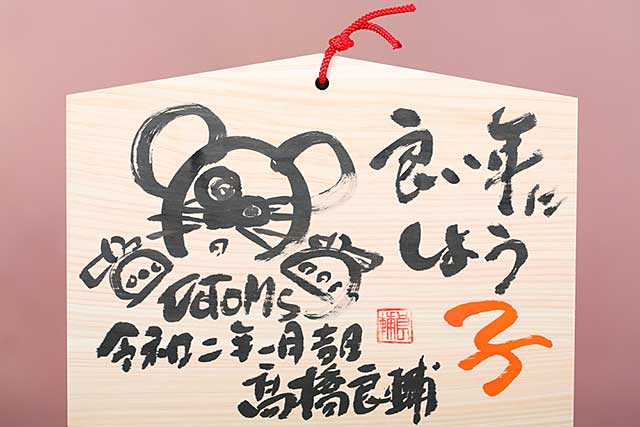 良い年に
しよう
子
VOTOMS
令和二年一月吉日
高橋良輔
良輔